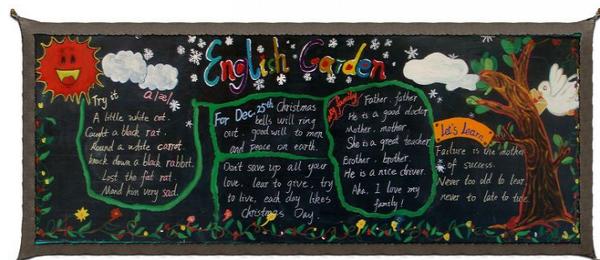 English Garden
Try it
A little white cat.
Caught a black rat.
Round a white carrot.
knock down a black rabbit.
Lost the fat rat.
Mand him very sad.
For Dec. 25th Christmas
bells will ring
out good will to men
and peace on earth.
Don't save up all your
love, lear to give, try
to live, each day likes
Christmas Day.
My family
Father, father
He is a good doctor
Mother, mother
She is a great teacher
Brother, brother.
He is a nice driver.
Aha, I love my
family!
let's learn
Failure is the mother
of success.
Never too old to lear
never to late to